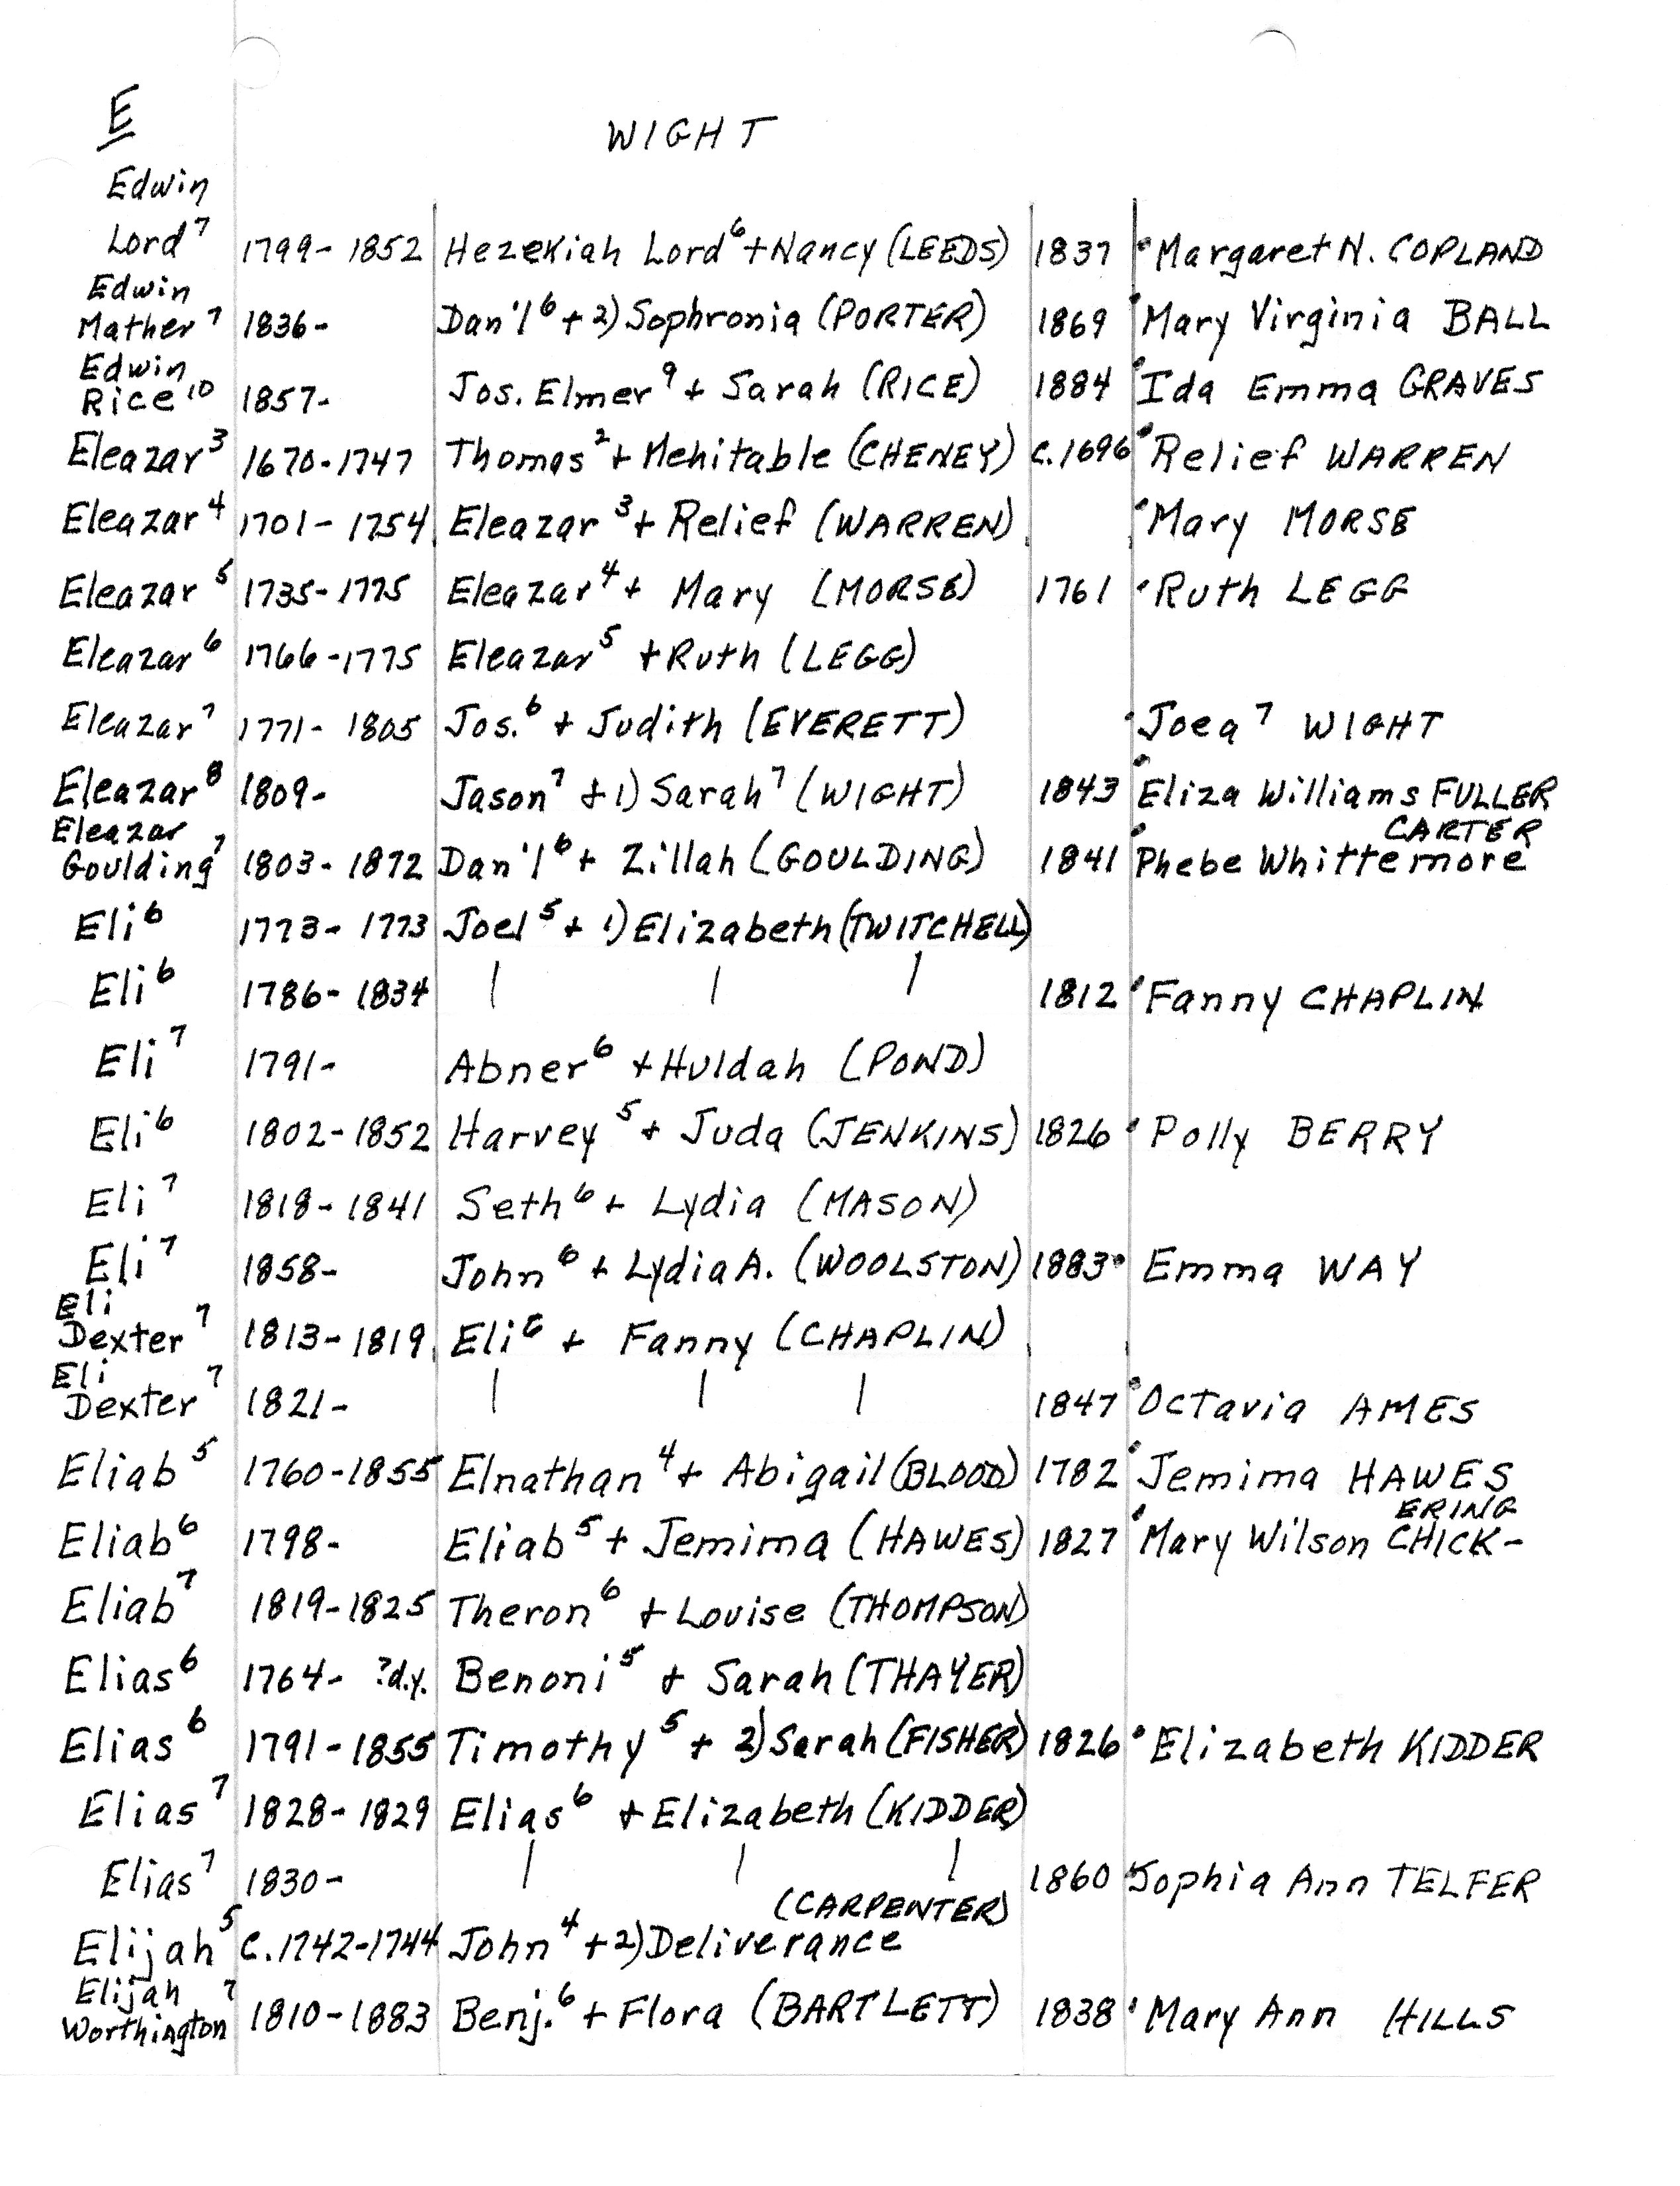 E
WIGHT
Edwin
Lord⁷ 1799- 1852 Hezekiah Lord⁶ + Nancy (LEEDS) 1837 Margaret N. COPLAND
Edwin
Mather⁷ 1836- Dan'l⁶ + 2) Sophronia (PORTER) 1869 Mary Virginia BALL
Edwin
Rice¹⁰ 1857- Jos. Elmer⁹ + Sarah (RICE) 1884 Ida Emma GRAVES
Eleazar³ 1670-1747 Thomas² + Mehitable (CHENEY) c.1696 Relief WARREN
Eleazar⁴ 1701-1754 Eleazar³ + Relief (WARREN) Mary MORSE
Eleazar⁵ 1735-1775 Eleazar⁴ + Mary (MORSE) 1761 Ruth LEGG
Eleazar⁶ 1766-1775 Eleazar⁵ + Ruth (LEGG)
Eleazar⁷ 1771- 1805 Jos.⁶ + Judith (EVERETT) Joea⁷ WIGHT
Eleazar⁸ 1809- Jason⁷ + 1) Sarah⁷ (WIGHT) 1843 Eliza Williams FULLER
Eleazar CARTER
Goulding⁷ 1803-1872 Dan'l⁶ + Zillah (GOULDING) 1841 Phebe Whittemore
Eli⁶ 1773- 1773 Joel⁵ + 1) Elizabeth (TWITCHELL)
Eli⁶ 1786-1834 | | | 1812 Fanny CHAPLIN
Eli⁷ 1791- Abner⁶ + Huldah (POND)
Eli⁶ 1802-1852 Harvey⁵ + Juda (JENKINS) 1826 Polly BERRY
Eli⁷ 1818-1841 Seth⁶ + Lydia (MASON)
Eli⁷ 1858- John⁶ + Lydia A. (WOOLSTON) 1883 Emma WAY
Eli
Dexter⁷ 1813-1819 Eli⁶ + Fanny (CHAPLIN)
Eli
Dexter⁷ 1821- | | | 1847 Octavia AMES
Eliab⁵ 1760-1855 Elnathan⁴ + Abigail (BLOOD) 1782 Jemima HAWES
ERING
Eliab⁶ 1798- Eliab⁵ + Jemima (HAWES) 1827 Mary Wilson CHICK-
Eliab⁷ 1819-1825 Theron⁶ + Louise (THOMPSON)
Elias⁶ 1764- ?d.y. Benoni⁵ + Sarah (THAYER)
Elias⁶ 1791-1855 Timothy⁵ + 2) Sarah (FISHER) 1826 Elizabeth KIDDER
Elias⁷ 1828-1829 Elias⁶ + Elizabeth (KIDDER)
Elias⁷ 1830- | | | 1860 Sophia Ann TELFER
(CARPENTER)
Elijah⁵ C.1742-1744 John⁴ + 2) Deliverance
Elijah
Worthington⁷ 1810-1883 Benj.⁶ + Flora (BARTLETT) 1838 Mary Ann HILLS